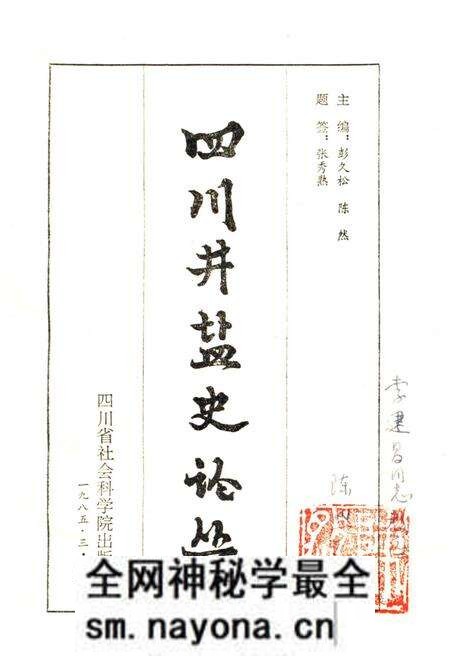 主　编：彭久松　陈　然
题　签：张秀熟
四川井盐史论丛
四川省社会科学院出版
一九八五·三·
李建昌同志
陈
全网神秘学最全
sm.nayona.cn